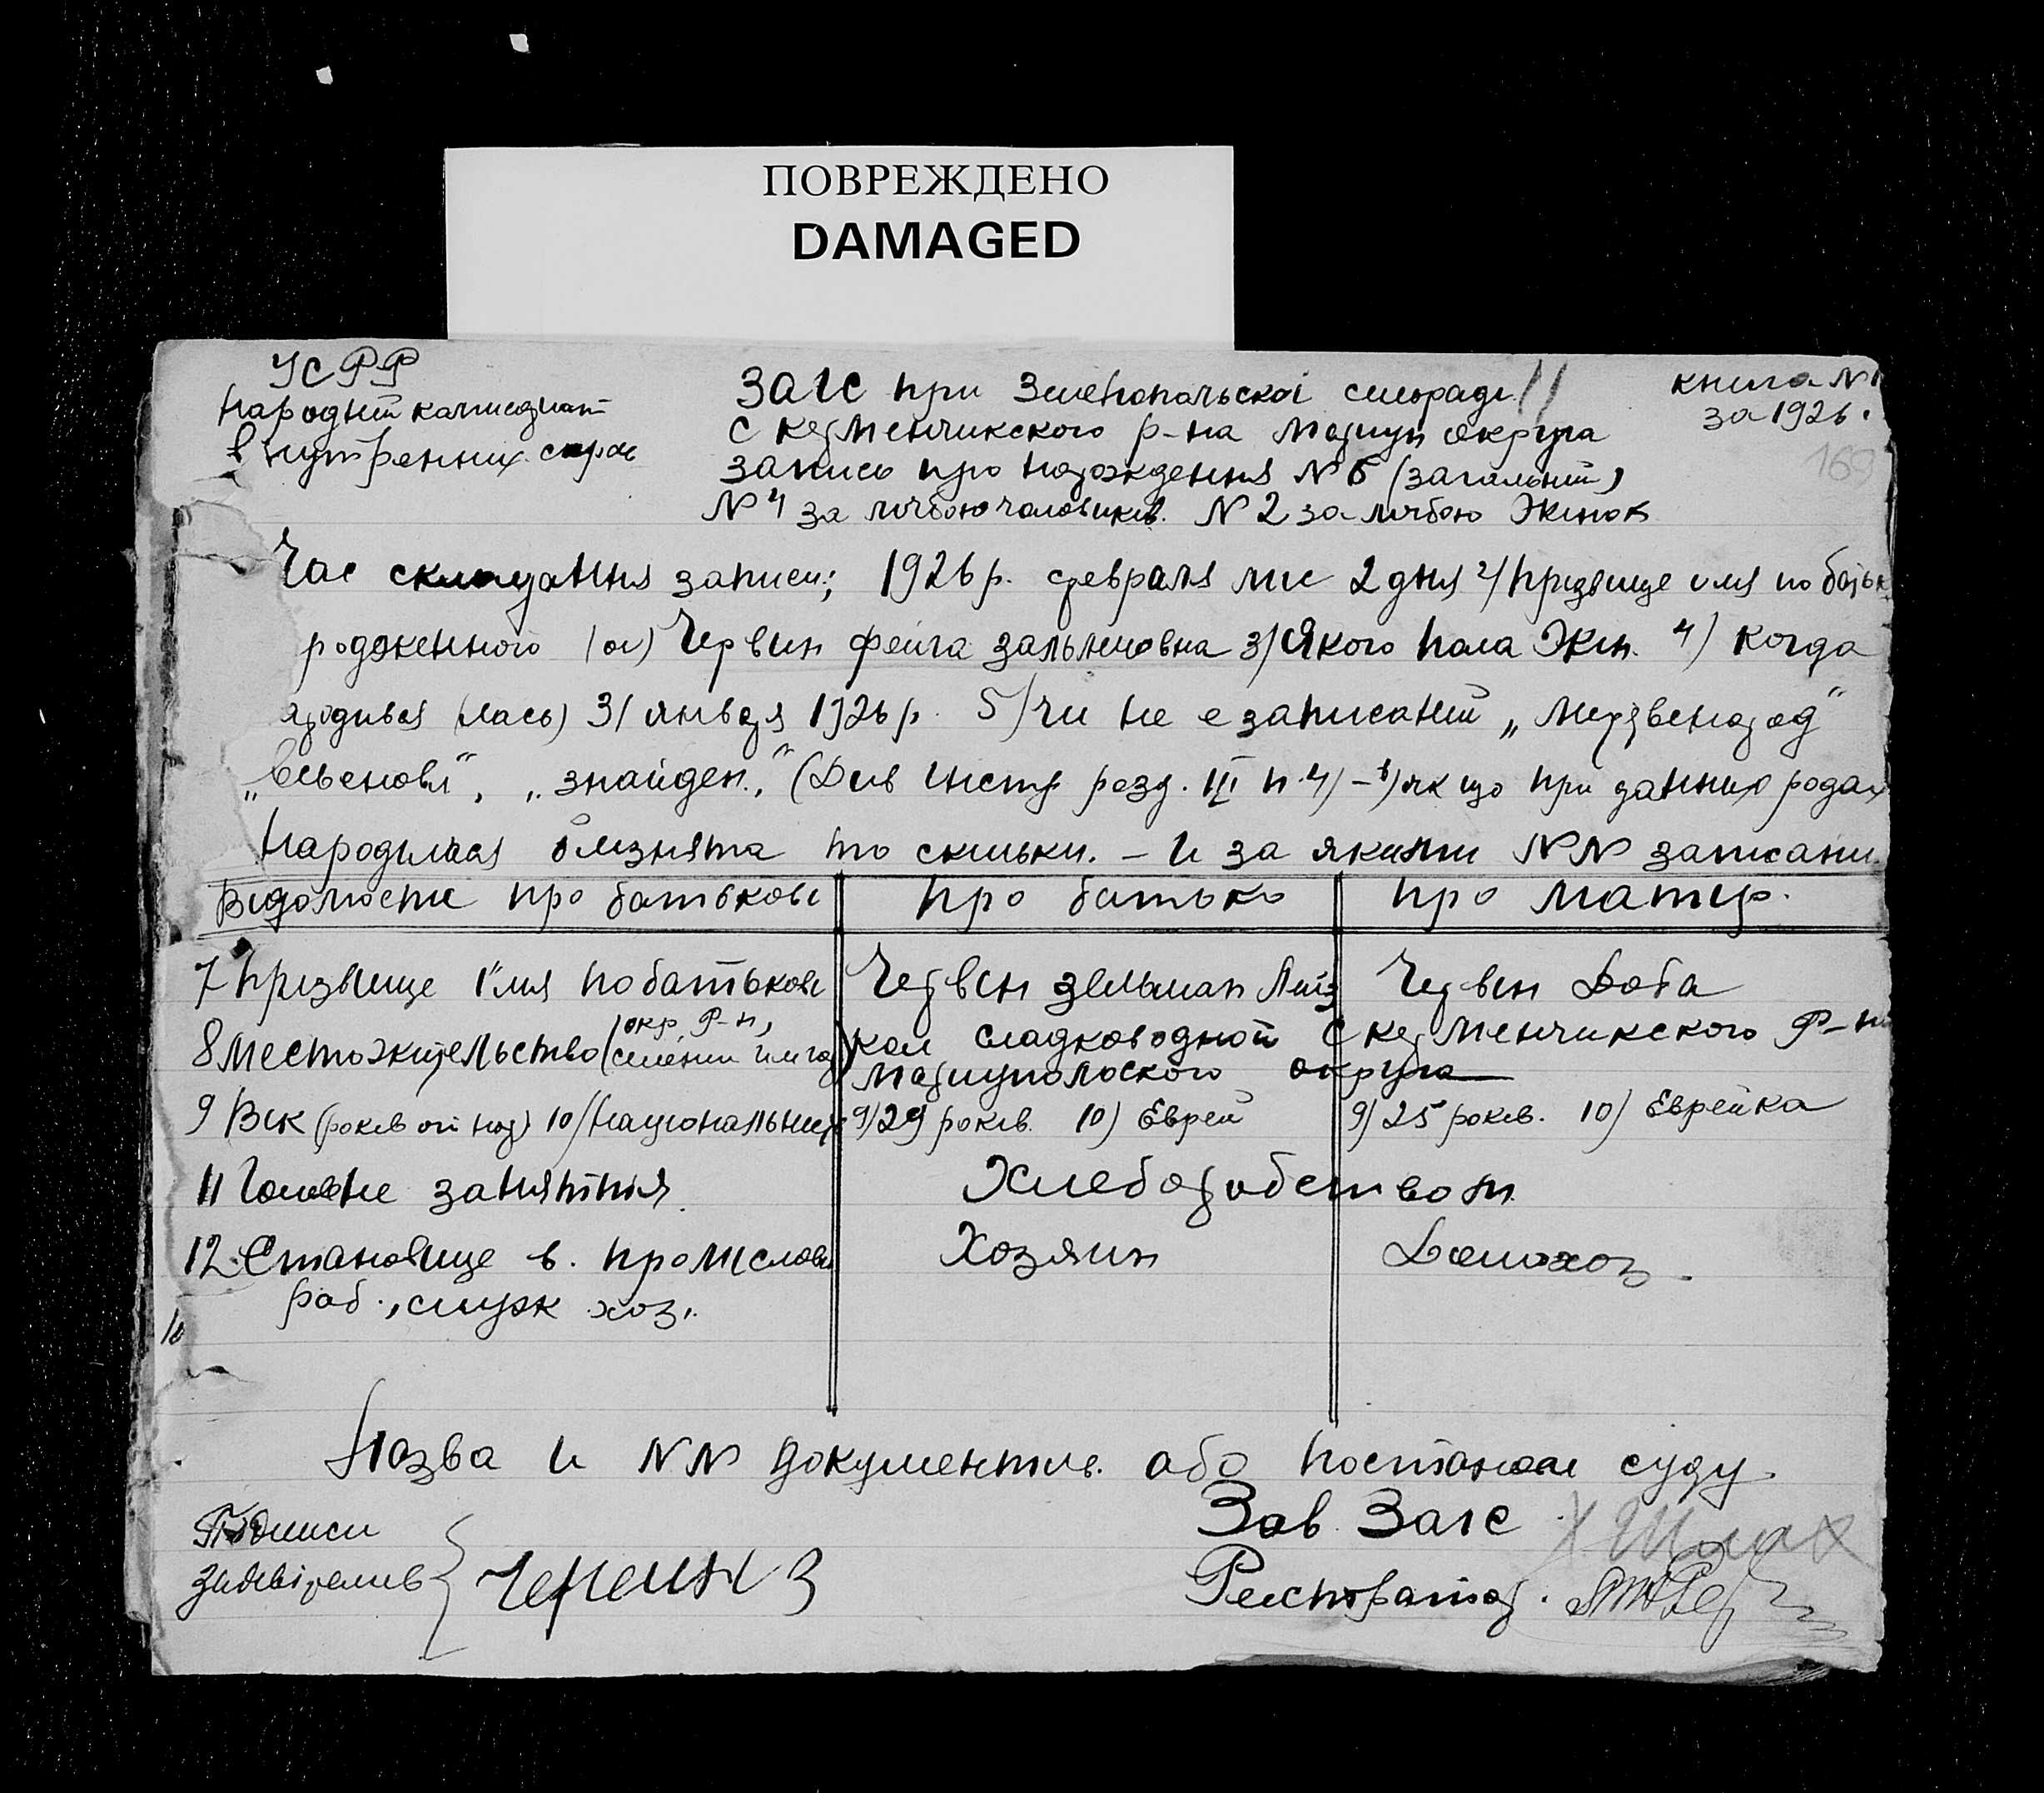 ПОВРЕЖДЕНО
DAMAGED
УСРР
Народний комисариат
внутренних справ
ЗАГС при Зеленопольской сильради
с керменчикского р-на Мариуп округа
запись про нарождення № 6 (загальний)
№ 4 за личбою чоловиков. № 2 за личбою Жинок
книга № 1
за 1926.
169
Час складання записи; 1926 р. февраля мис 2 дня 2) призвище имя по батьк
родженного (ои) Червин Фейга Зальмовна 3) Якого пола Жин. 4) Когда
родився (лась) 31 января 1926 р. 5) чи не е записаний „Мертвенарод"
„ ", „знайден.," (Див инстр розд. III п. 4) – 6) як що при данних родах
Народилися близнята то скильки. – и за якими №№ записани.
Видомости про батькови
про батько
про матир.
7 призвище имя по батькови
Червин Зельман Лейз
Червин Доба
8 Местожительство (окр. Р-н,
селении или год)
кол сладководной Скерменчикского Р-н
Мариупольского округа
9 Вик (рокив от нар) 10/Национальнисть
9) 29 рокив. 10) Еврей
9) 25 рокив. 10) Еврейка
11 Головне заняття.
Хлеборобством
12. Становище в. промислови
раб., служ хоз.
Хозяин
Домохоз.
10
Назва и №№ документив. або постанови суду.
Подписи
заявителив
Зав. Загс
Регистратор.